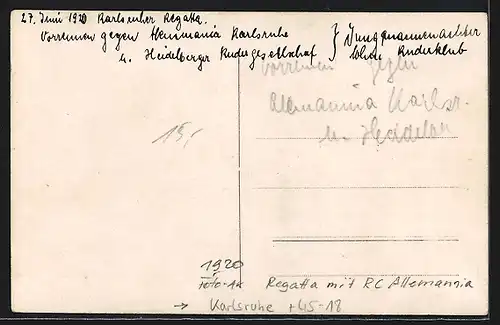 27. Juni 1920 Karlsruher Regatta.
Vorrennen gegen Alemannia Karlsruhe
u. Heidelberger Rudergesellschaf } Jungmannenachter
Ruderklub
Vorrennen gegen
Allemannia Karlsr.
u. Heidelber
15,-
1920
Foto-AK
Regatta mit RC Allemannia
→ Karlsruhe +45-18